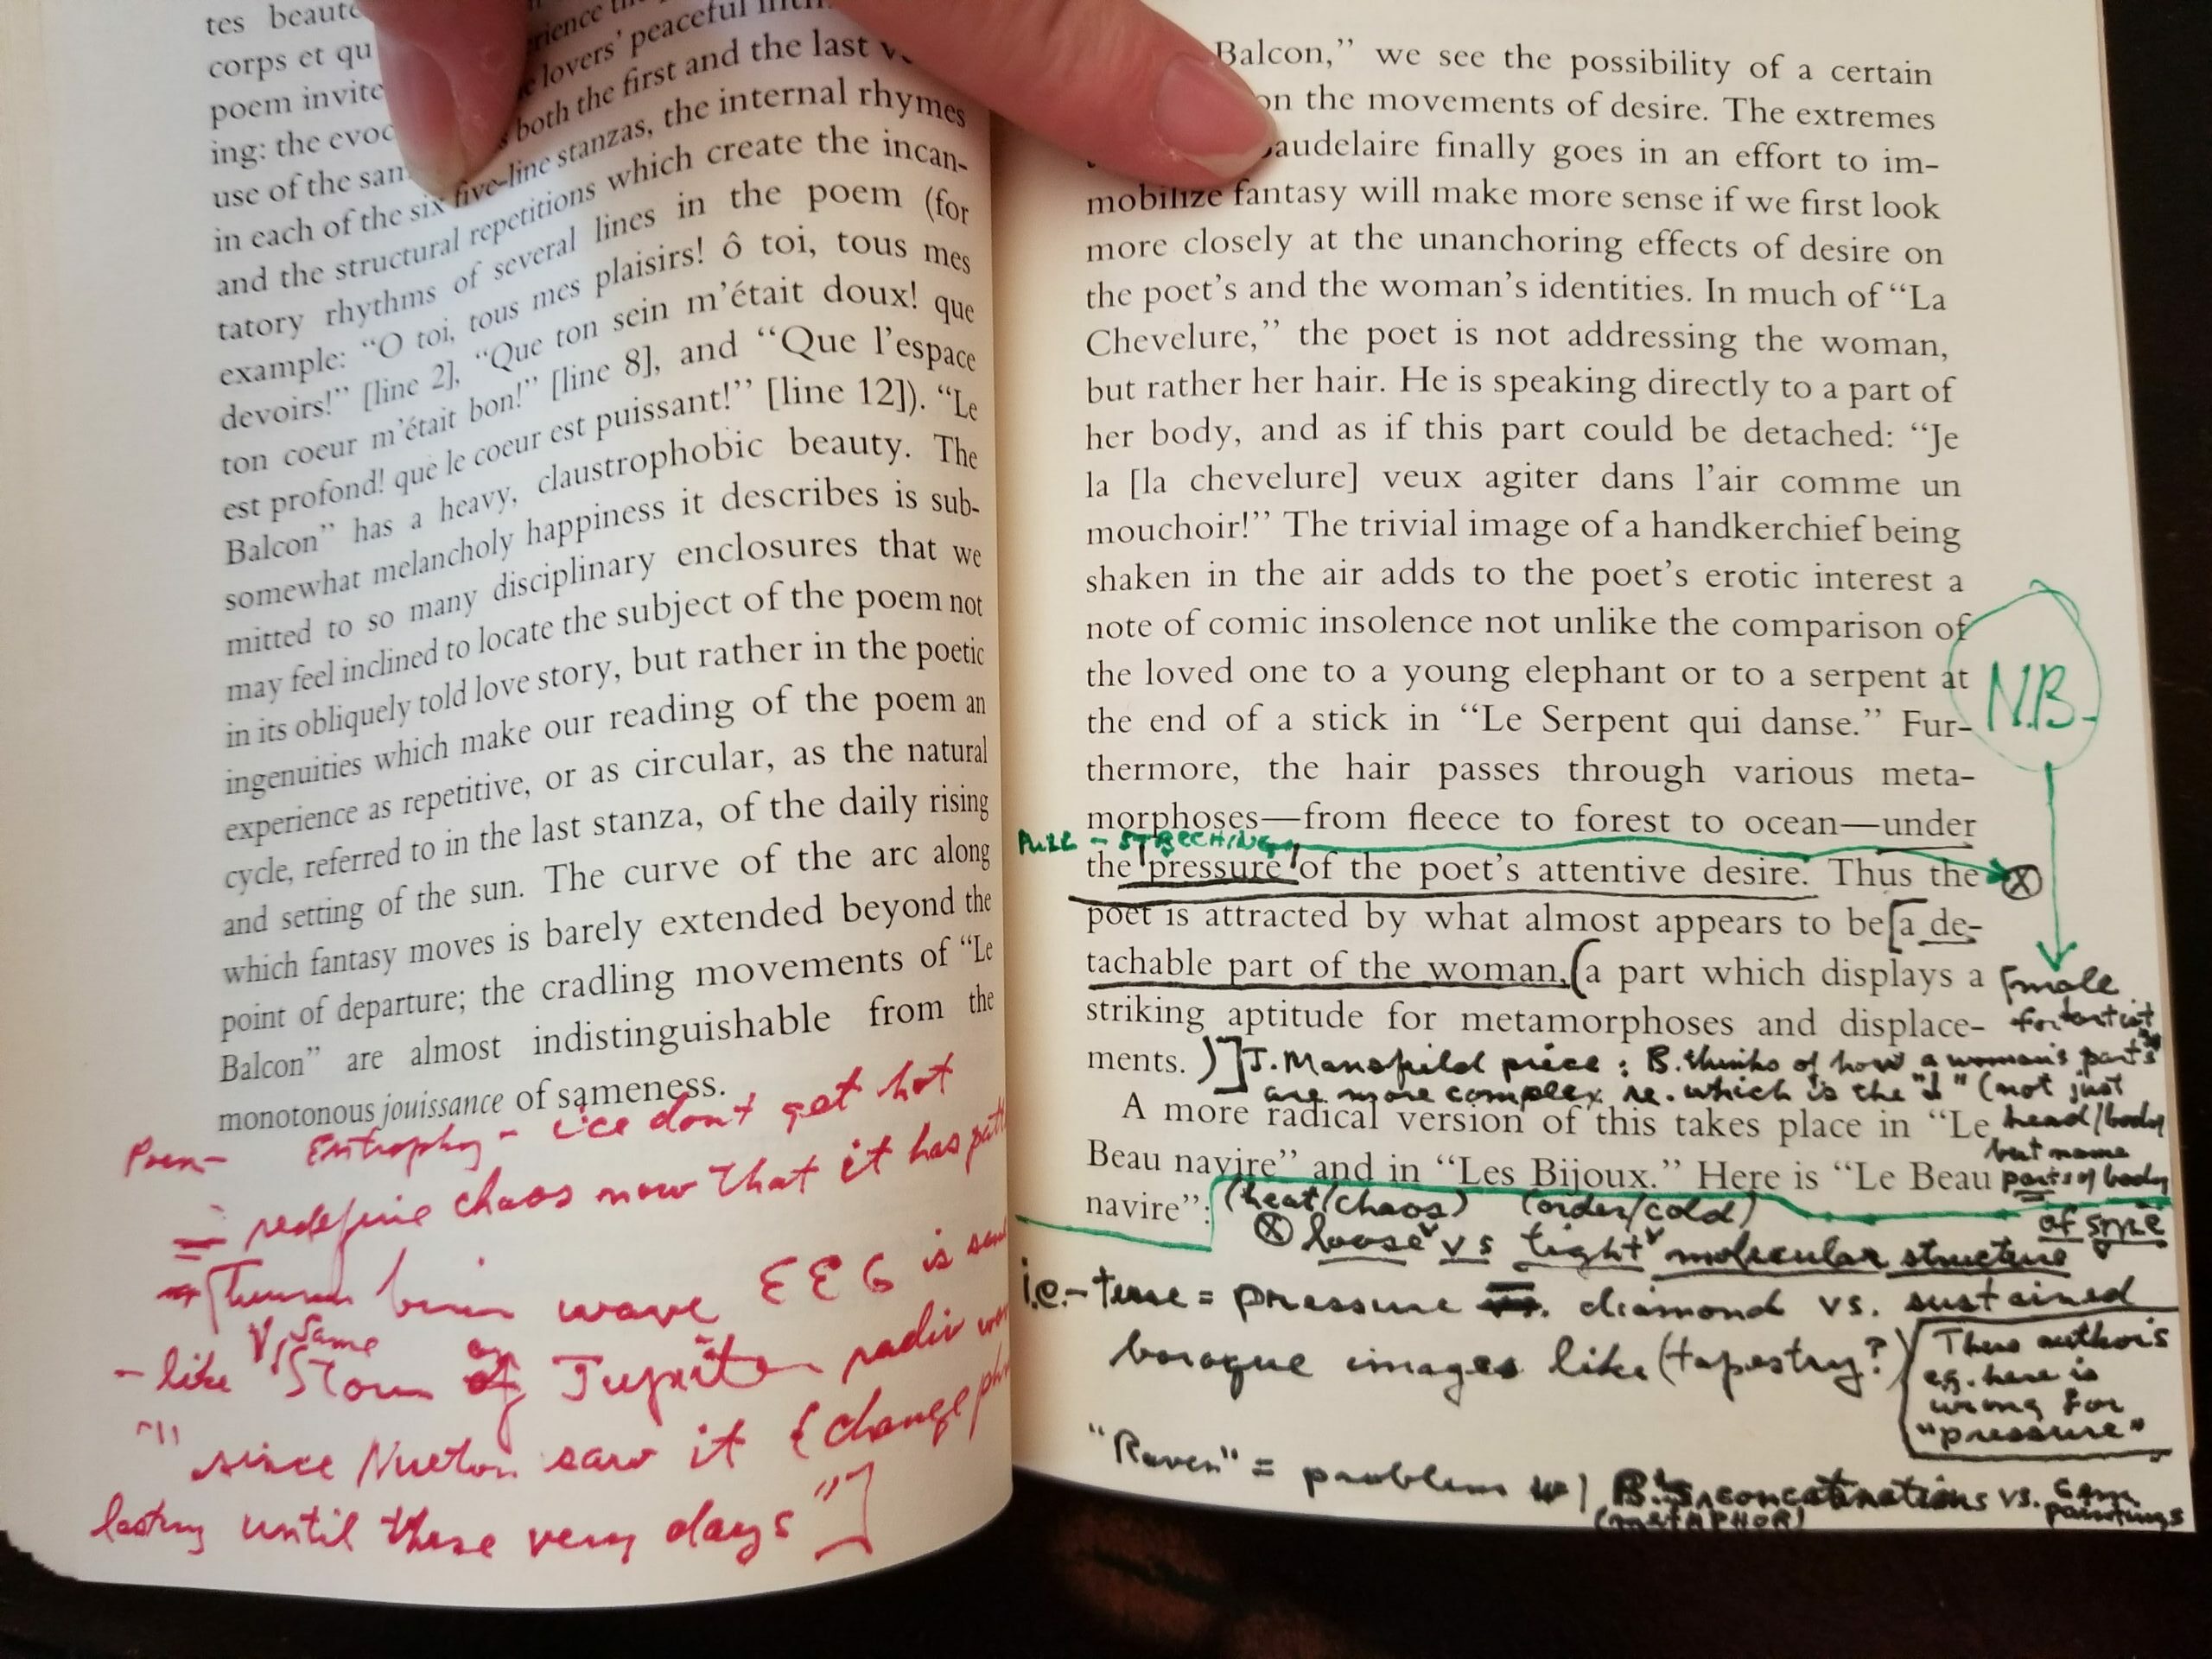 tes beauté
corps et qu
poem invite
ing: the evoc
use of the sam
in each of the six five-line stanzas, the internal rhymes
and the structural repetitions which create the incan-
tatory rhythms of several lines in the poem (for
example: “O toi, tous mes plaisirs! ô toi, tous mes
devoirs!” [line 2], “Que ton sein m’était doux! que
ton coeur m’était bon!” [line 8], and “Que l’espace
est profond! que le coeur est puissant!” [line 12]). “Le
Balcon” has a heavy, claustrophobic beauty. The
somewhat melancholy happiness it describes is sub-
mitted to so many disciplinary enclosures that we
may feel inclined to locate the subject of the poem not
in its obliquely told love story, but rather in the poetic
ingenuities which make our reading of the poem an
experience as repetitive, or as circular, as the natural
cycle, referred to in the last stanza, of the daily rising
and setting of the sun. The curve of the arc along
which fantasy moves is barely extended beyond the
point of departure; the cradling movements of “Le
Balcon” are almost indistinguishable from the
monotonous jouissance of sameness.
Poem- Entrophy - ice don't get hot
= redefine chaos now that it has patt
wave EEG is
- like same Storm on Jupiter radio
"" since Newton saw it & change
lasting until these very days"]
rience
e lovers’ peaceful
both the first and the last
Balcon,” we see the possibility of a certain
on the movements of desire. The extremes
audelaire finally goes in an effort to im-
mobilize fantasy will make more sense if we first look
more closely at the unanchoring effects of desire on
the poet’s and the woman’s identities. In much of “La
Chevelure,” the poet is not addressing the woman,
but rather her hair. He is speaking directly to a part of
her body, and as if this part could be detached: “Je
la [la chevelure] veux agiter dans l’air comme un
mouchoir!” The trivial image of a handkerchief being
shaken in the air adds to the poet’s erotic interest a
note of comic insolence not unlike the comparison of
the loved one to a young elephant or to a serpent at
the end of a stick in “Le Serpent qui danse.” Fur-
N.B.
thermore, the hair passes through various meta-
morphoses—from fleece to forest to ocean—under
the "pressure" of the poet’s attentive desire. Thus the
poet is attracted by what almost appears to be [a de-
tachable part of the woman, (a part which displays a
striking aptitude for metamorphoses and displace-
ments. )] J. Mansfield piece: B. thinks of how a woman's parts
are more complex re. which is the "I" (not just
A more radical version of this takes place in “Le
head/body
Beau navire” and in “Les Bijoux.” Here is “Le Beau
but name
parts of body
navire”:
(heat/chaos) (order/cold)
of style
loose vs tight molecular structure
i.e.- terse = pressure = diamond vs. sustained
baroque images like (tapestry?)
Thus author's
e.g. here is
wrong for
"pressure"
"Raven" = problem w/ B.'s concatenations vs. Gem
(METAPHOR)
paintings